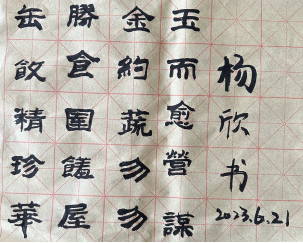 缶勝金玉
飲食約而
精園蔬愈
珍饈勿營
華屋勿謀
杨欣书
2023.6.21